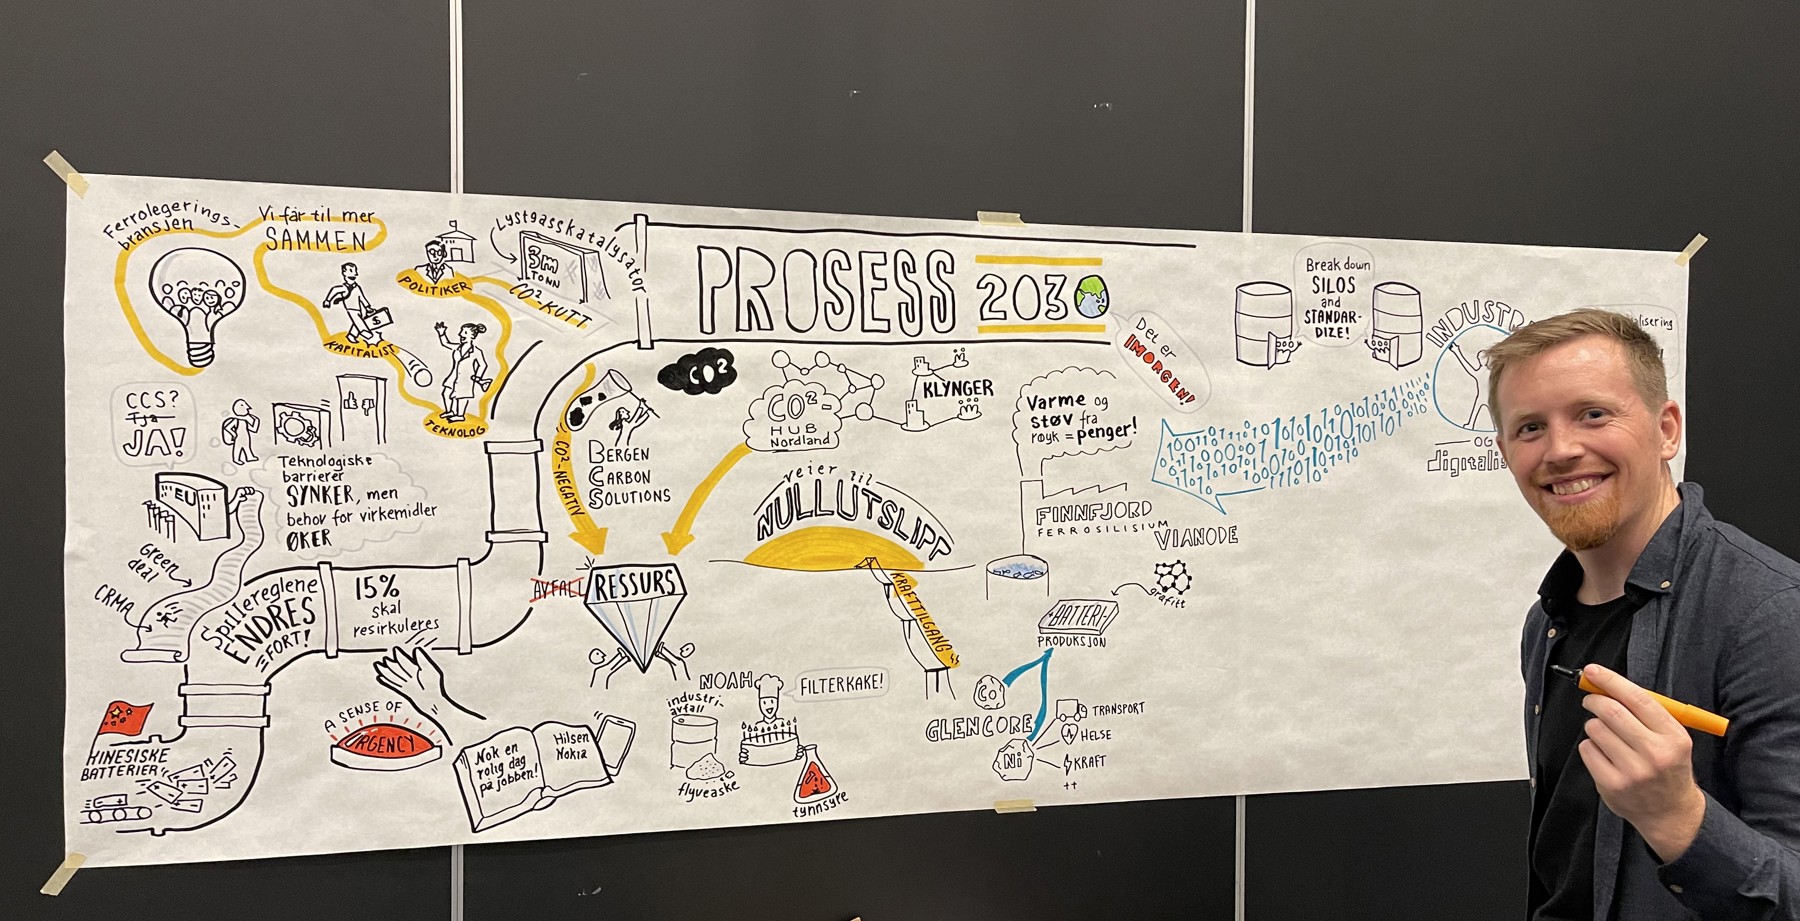 Ferrolegerings-
bransjen
Vi får til mer
SAMMEN
POLITIKER
KAPITALIST
$
TEKNOLOG
Lystgasskatalysator
3m
TONN
CO²-KUTT
PROSESS 2030
Det er
IMORGEN!
Break down
SILOS
and
STANDAR-
DIZE!
OG
CCS?
Tja
JA!
EU
Green
deal
CRMA
Teknologiske
barrierer
SYNKER, men
behov for virkemidler
ØKER
Spillereglene
ENDRES
FORT!
15%
skal
resirkuleres
KINESISKE
BATTERIER
A SENSE OF
URGENCY
Nok en
rolig dag
på jobben!
Hilsen
Nokia
CO²
CO²-NEGATIV
BERGEN
CARBON
SOLUTIONS
AVFALL
RESSURS
CO²-
HUB
Nordland
KLYNGER
veier til
NULLUTSLIPP
KRAFTTILGANG
NOAH
industri-
avfall
flyveaske
FILTERKAKE!
tynnsyre
Varme og
støv fra
røyk = penger!
FINNFJORD
FERROSILISIUM
VIANODE
grafitt
BATTERI-
PRODUKSJON
Co
GLENCORE
Ni
TRANSPORT
HELSE
KRAFT
++